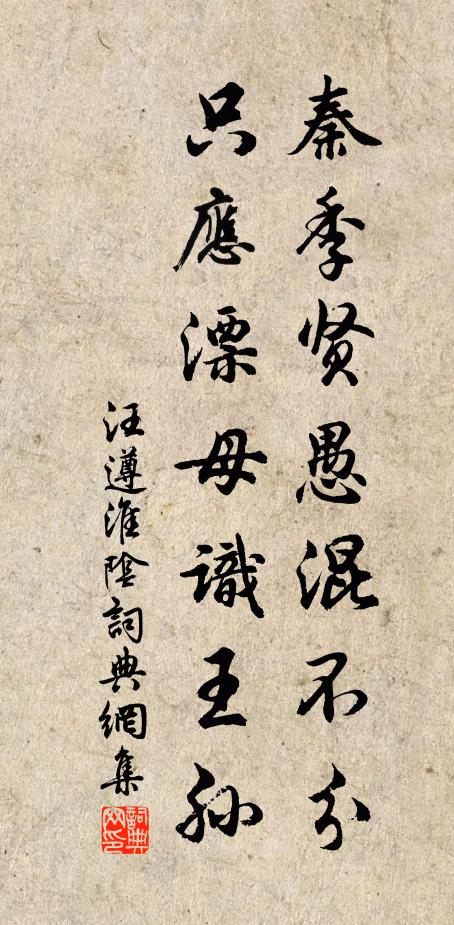 秦季贤愚混不分
只應漂母識王孙
汪遵淮陰詞典網集
詞典网印